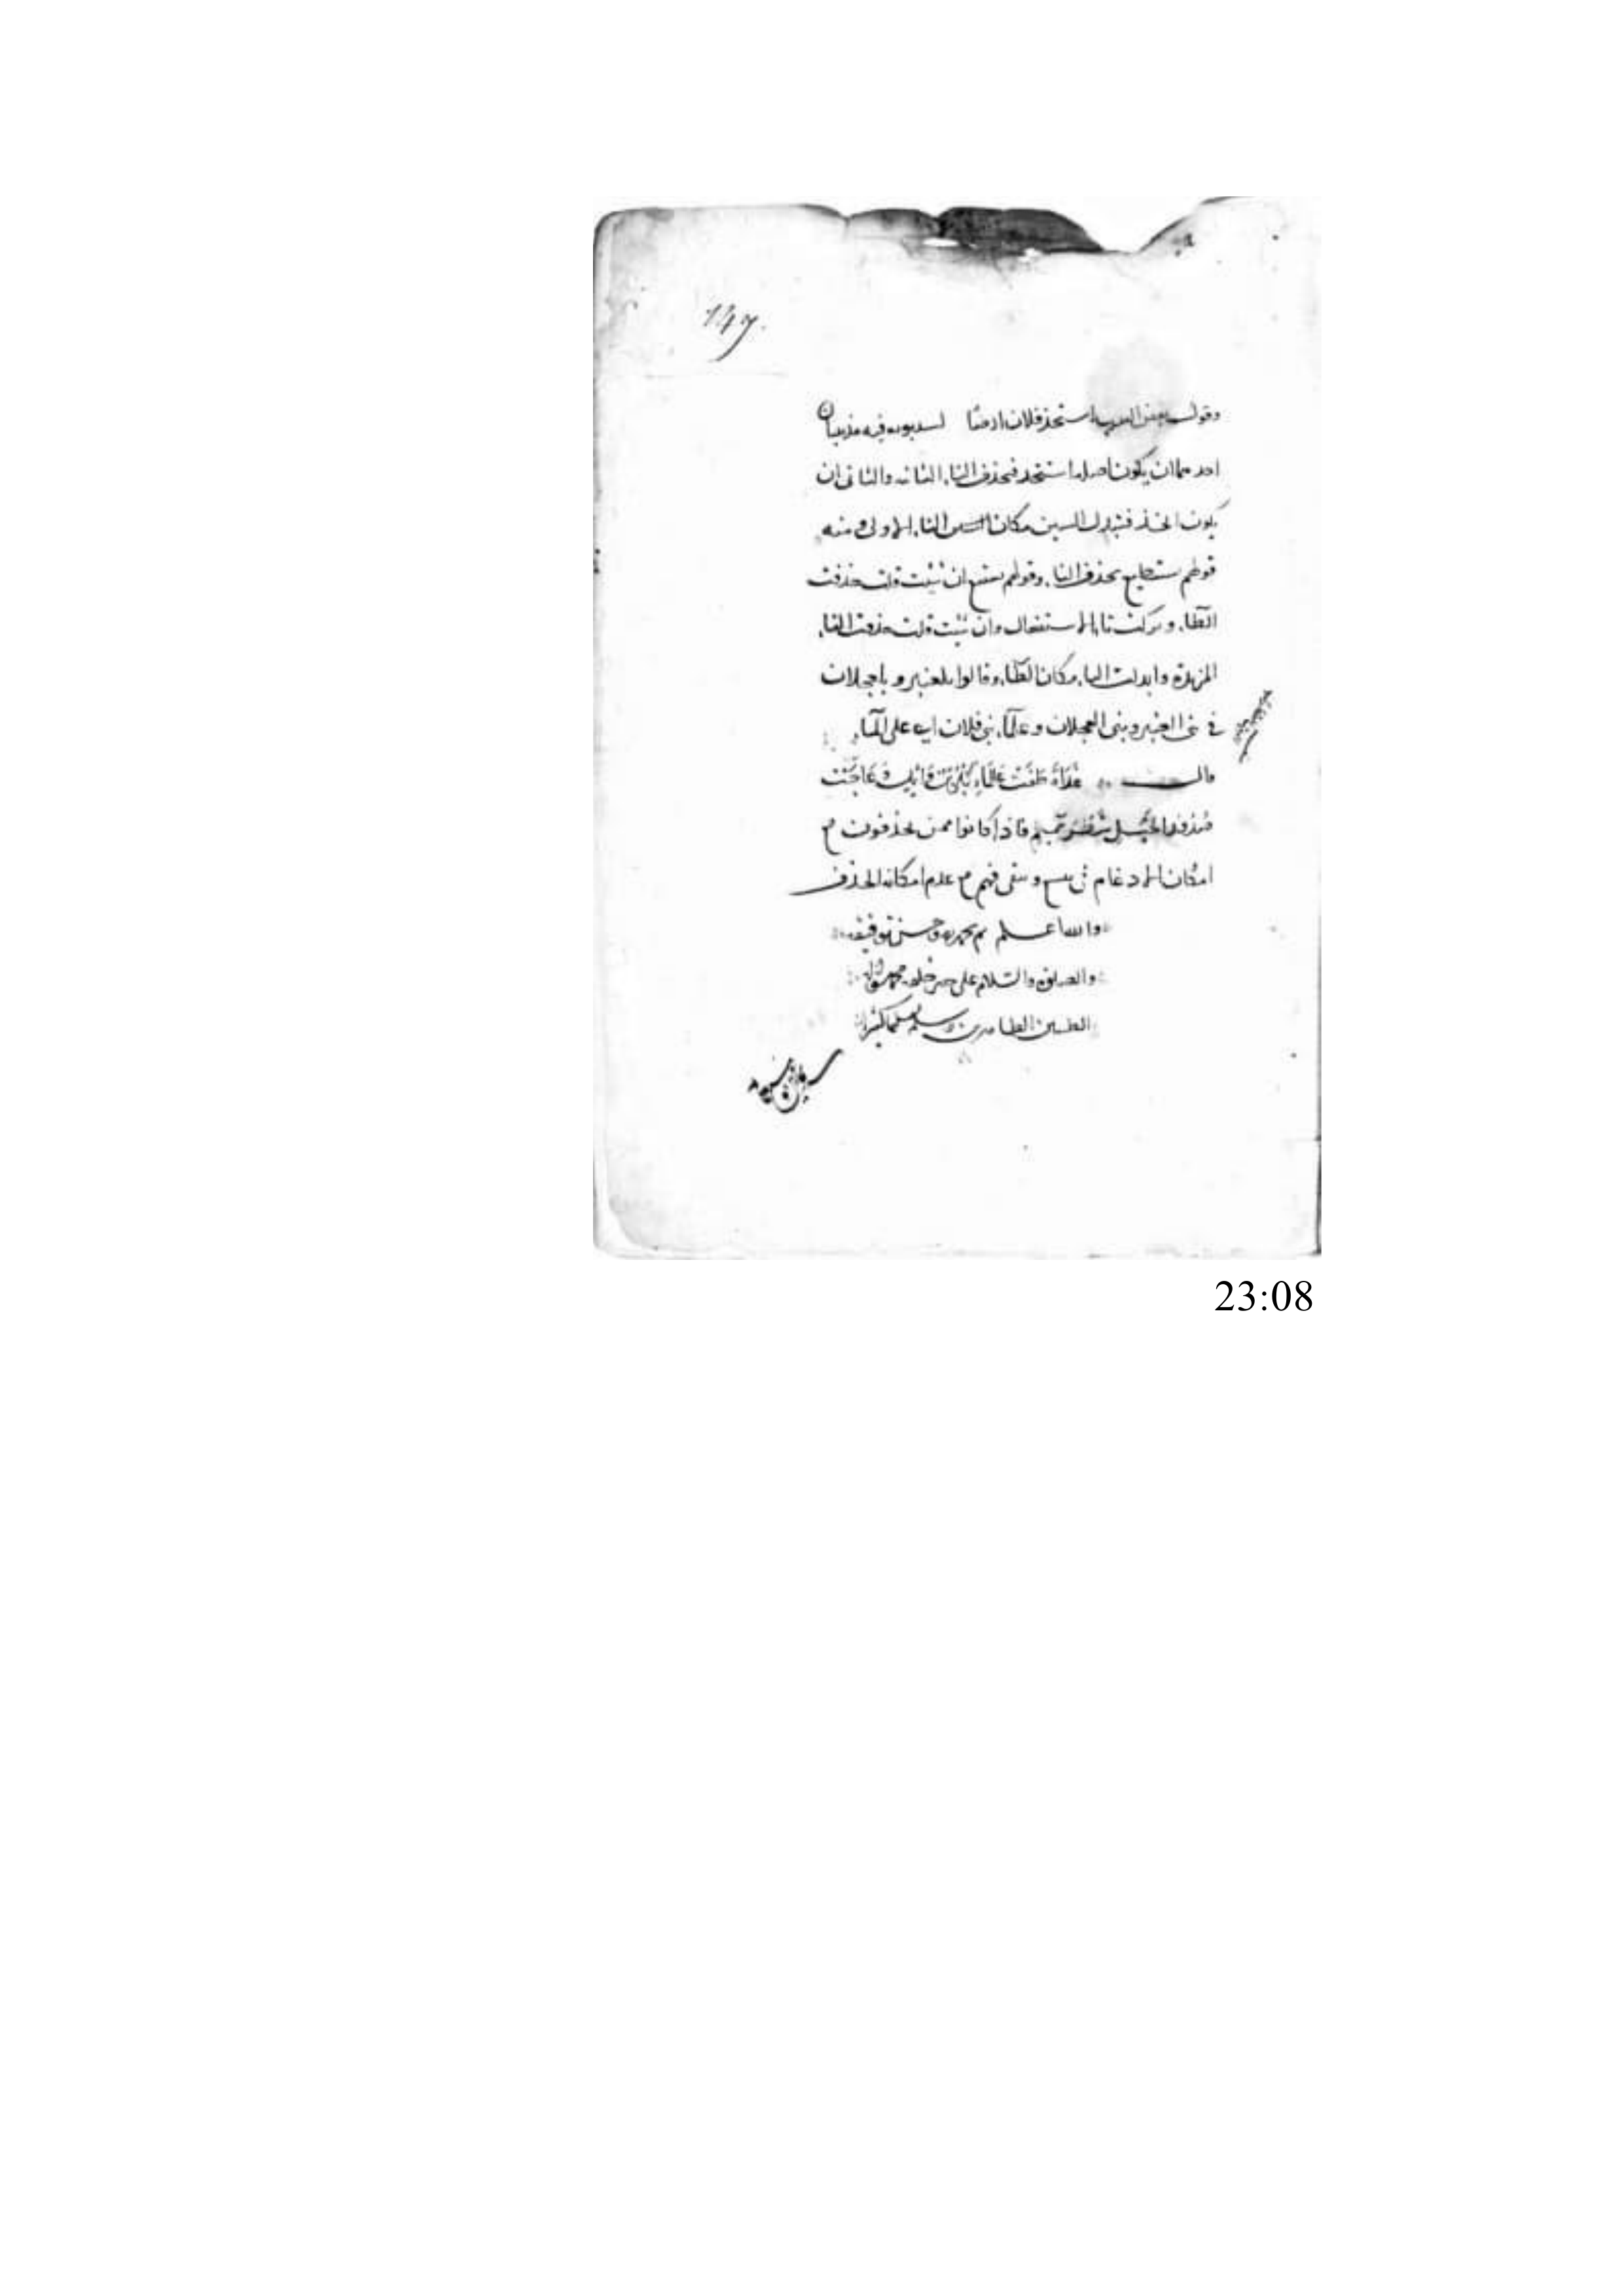 147.
وقول بعض العرب استخذ فلان ارضا لسيبويه فيه مذهبان
احدهما ان يكون اصله استتخذ فحذف التاء الثانيه والثانى ان
يكون اتخذ فتبدل السين مكان التاء الاولى ومنه
قولهم يستطيع بحذف التاء وقولهم يستيع ان شئت قلت حذفت
الطاء وتركت تاء الاستفعال وان شئت قلت حذفت التاء
المزيدة وابدلت التاء مكان الطاء وقالوا بلعنبر و بلعجلان
فى بنى العنبر وبنى العجلان وعلماء بنى فلان اى على الماء
قال غداة طفت علماء بكر بن وائل وعاجت
صدور الخيل شطر تميم فاذا كانوا ممن يحذفون مع
امكان الادغام فى يتسع ويتقى فهم مع عدم امكانه احذف
والله اعلم تم بحمده وحسن توفيقه
والصلوة والسلام على خير خلقه محمد واله
الطيبين الطاهرين وسلم تسليما كثيرا
23:08